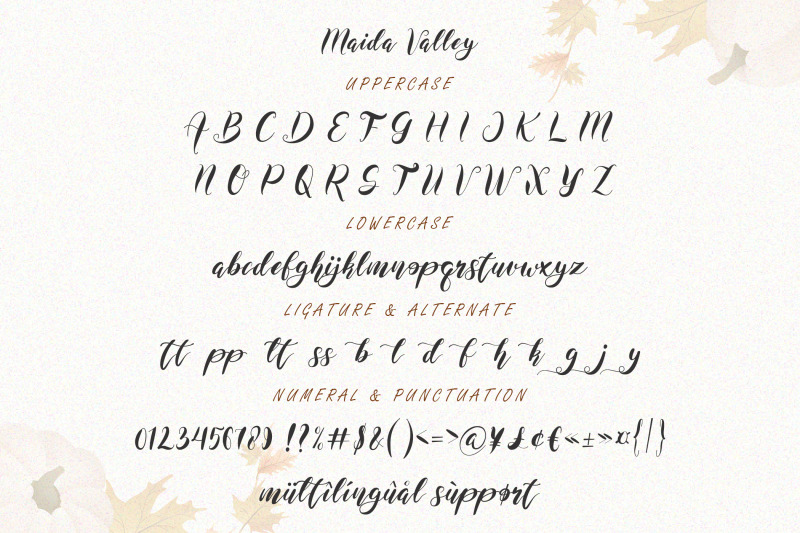 Maida Valley
UPPERCASE
A B C D E F G H I J K L M
N O P Q R S T U V W X Y Z
LOWERCASE
abcdefghijklmnopqrstuvwxyz
LIGATURE & ALTERNATE
tt pp tt ss b t d f h k g j y
NUMERAL & PUNCTUATION
0123456789 !?%#$&()<=>@¥£¢€«±»¤{|}
mültîlíngûål sùppørt